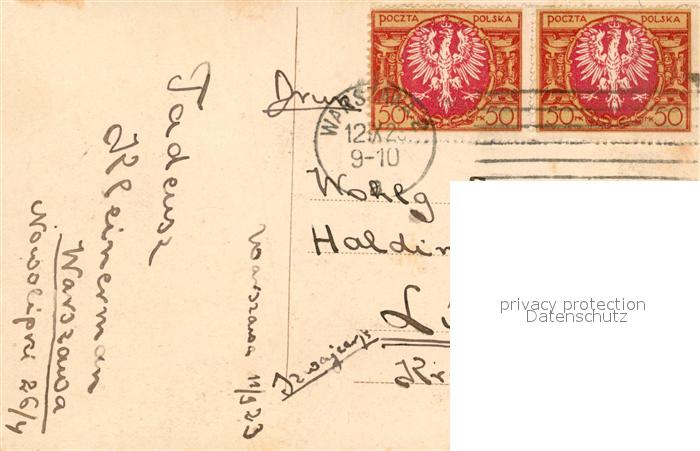 POCZTA POLSKA
50 MK 50
POCZTA POLSKA
50 MK 50
WARSZAWA 2
12 IX 23
9-10
Druk
Tadeusz
Kleinerman
Warszawa
Nowolipki 26/4
Warszawa 11/9 23
Wohlg
Haldi
Szwajcarja
Kr
privacy protection
Datenschutz